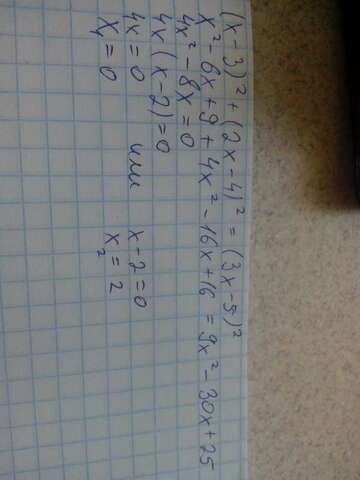 (x-3)² + (2x-4)² = (3x-5)²
x² - 6x + 9 + 4x² - 16x + 16 = 9x² - 30x + 25
4x² - 8x = 0
4x (x-2) = 0
4x = 0 или x - 2 = 0
x₁ = 0 x₂ = 2